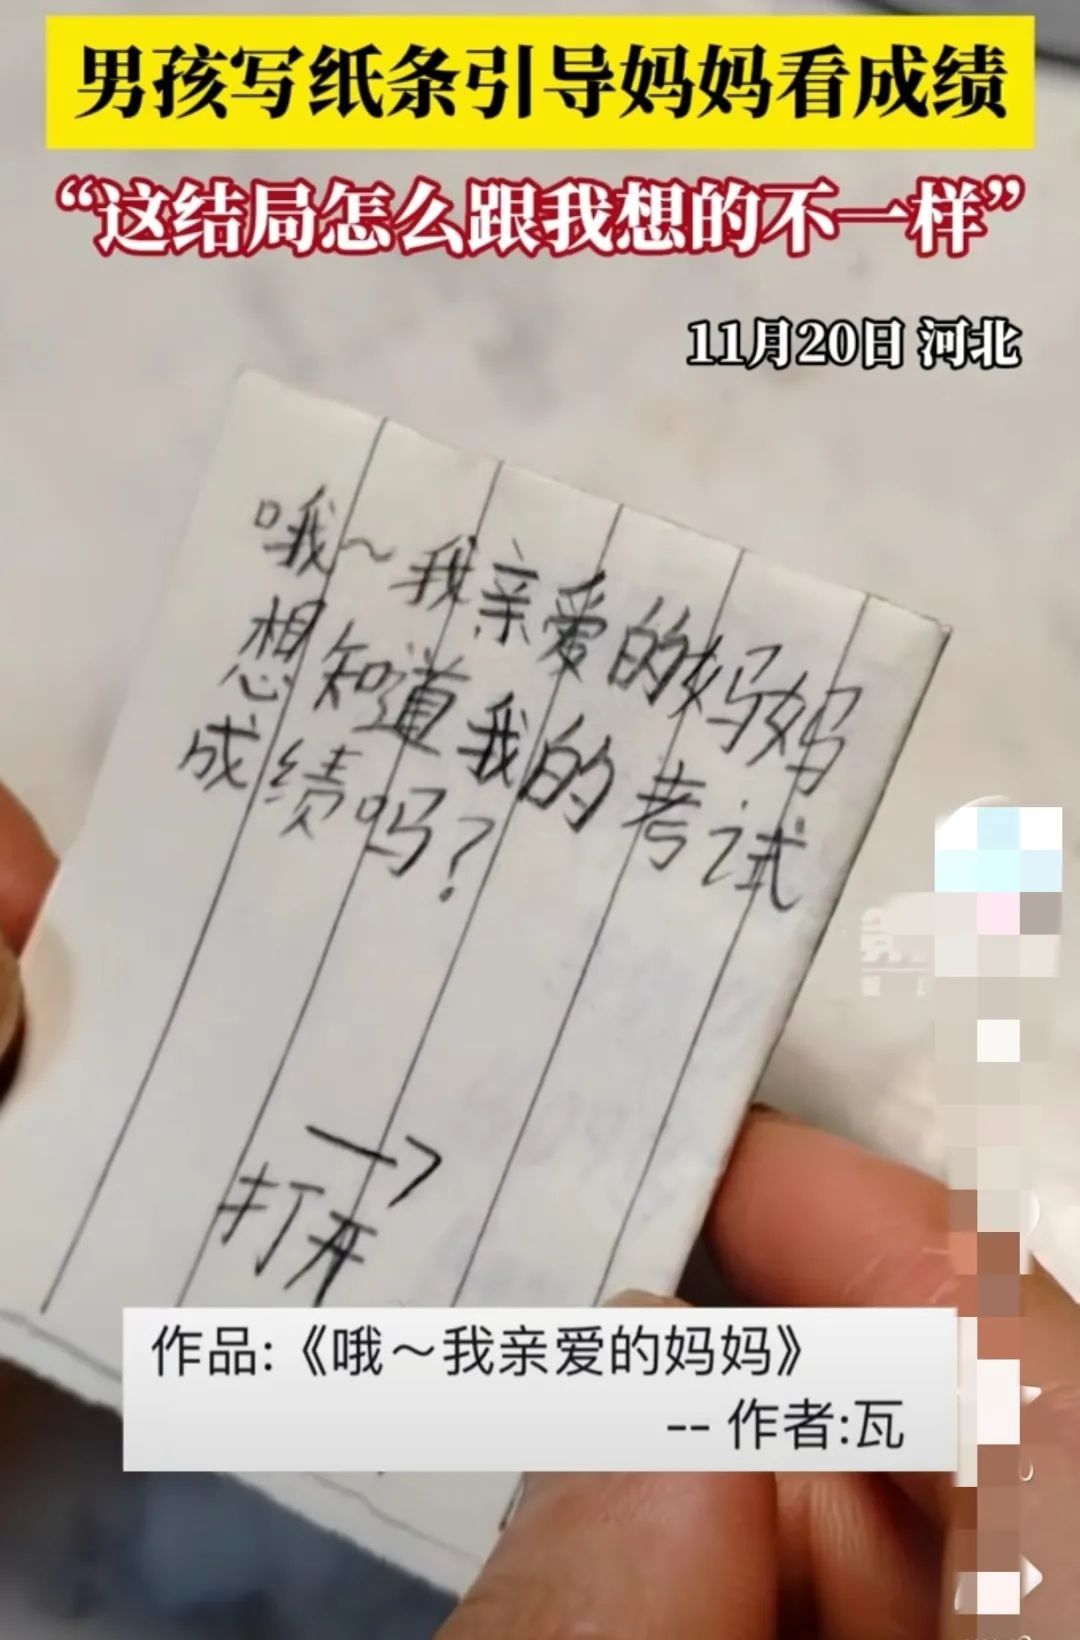 男孩写纸条引导妈妈看成绩
“这结局怎么跟我想的不一样”
11月20日 河北
哦~我亲爱的妈妈
想知道我的考试
成绩吗?
→
打开
作品:《哦~我亲爱的妈妈》
-- 作者:瓦